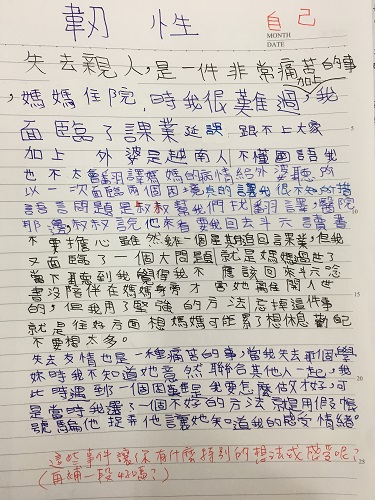 韌性
自己
MONTH
DATE
失去親人,是一件非常痛苦的事
,媽媽住院,時我很難過,我
面臨了課業延誤 跟不上大家
加上 外婆是越南人不懂國語我
也不太會翻譯媽媽的病情給外婆聽所
以一次面臨兩個困境真的讓我很不知所措
語言問題是叔叔幫我們找翻譯,醫院
那邊叔叔說他來看要我回去斗六讀書
不要擔心雖然我一個星期追回課業,但我
又面臨了一個大問題就是媽媽過世了
當下再聽到我覺得我不應該回來斗六唸
書沒陪伴在媽媽身旁才害她離開人世
的,但我用了堅強的方法忘掉這件事
就是往好方面想媽媽可能累了想休息勸自己
不要想太多。
失去友情也是一種痛苦的事,當我失去那個學
妹時我不知道她竟然聯合其他人一起,我
比時遇到一個困難是我要怎麼做才好,可
是當時我選了一個不好的方法就是用假帳
號騙他捉弄他讓她知道我的感受情緒。
這些事件讓你有什麼特別的想法或感受呢?
(再補一段4301嗎?)